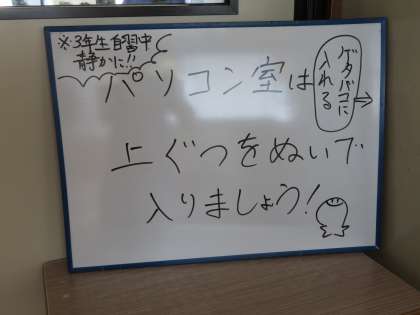 ※3年生自習中
静かに!!
パソコン室は
ゲタバコに
入れる
⇒
上ぐつをぬいで
入りましょう!